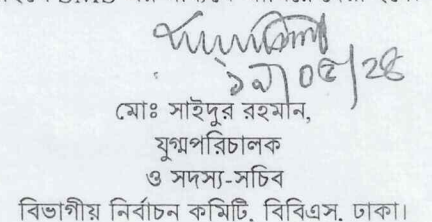 মোঃ সাইদুর রহমান,
যুগ্মপরিচালক
ও সদস্য-সচিব
বিভাগীয় নির্বাচন কমিটি, বিবিএস, ঢাকা।